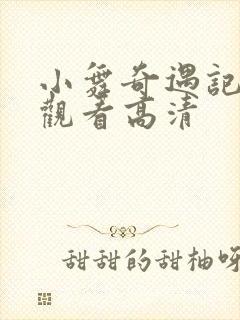 小舞奇遇記
觀看高清
甜甜的甜柚呀